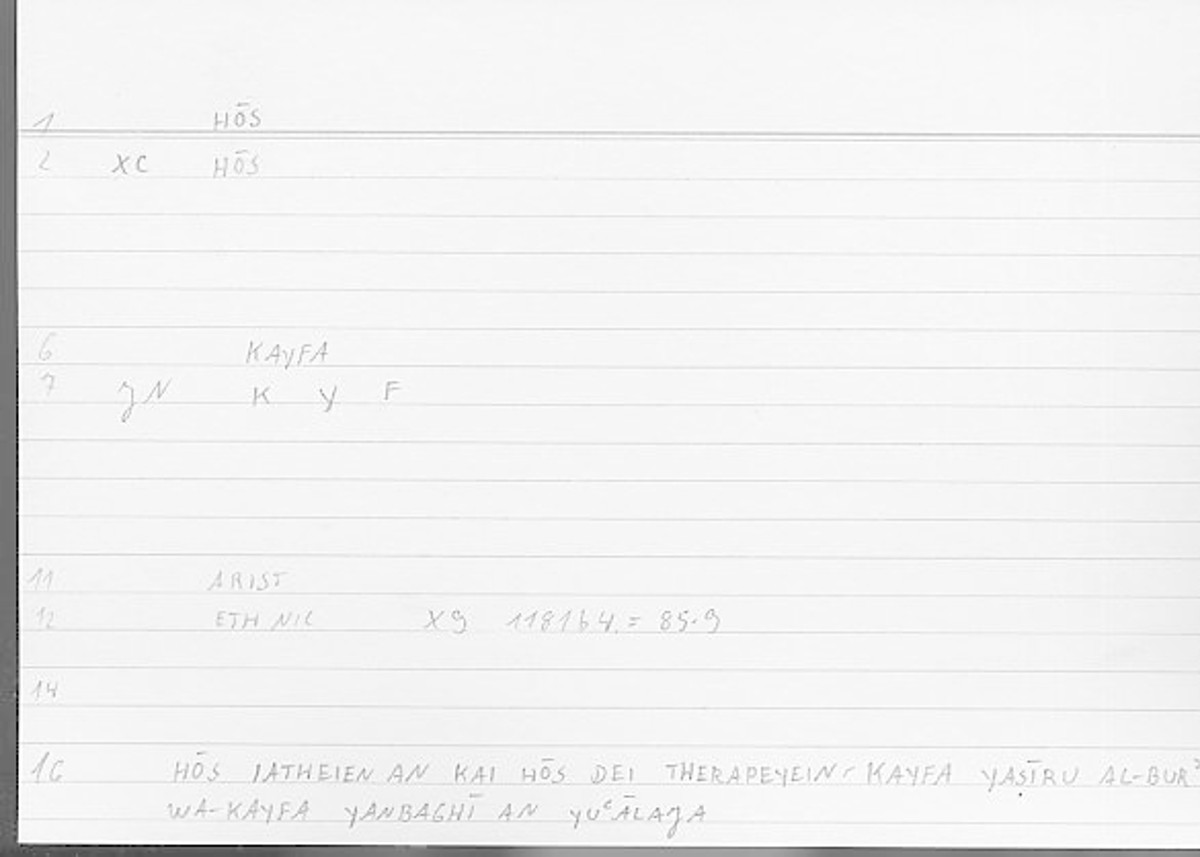 1 HŌS
2 XC HŌS
6 KAYFA
7 JN K Y F
11 ARIST
12 ETH NIC X9 1181b4.= 85.9
14
16 HŌS IATHEIEN AN KAI HŌS DEI THERAPEYEIN / KAYFA YAṢĪRU AL-BURʾ
WA-KAYFA YANBAGHĪ AN YUʿĀLAJA